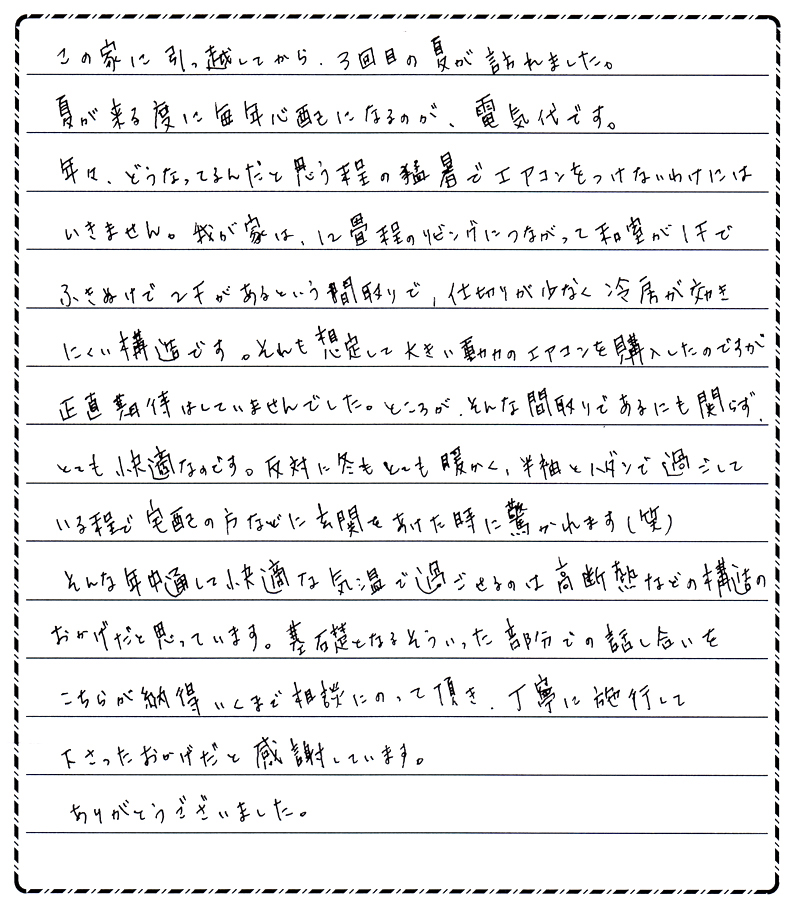 この家に引っ越してから、3回目の夏が訪れました。
夏が来る度に毎年心配になるのが、電気代です。
年々、どうなってるんだと思う程の猛暑でエアコンをつけないわけには
いきません。我が家は、12畳程のリビングにつながって和室が1千で
ふきぬけで2千があるという間取りで、仕切りが少なく冷房が効き
にくい構造です。それも想定して大きい動力のエアコンを購入したのですが
正直期待はしていませんでした。ところが、そんな間取りであるにも関らず、
とても快適なのです。反対に冬もとても暖かく、半袖とハダシで過ごして
いる程で宅配の方などに玄関をあけた時に驚かれます(笑)
そんな年中通して快適な気温で過ごせるのは高断熱などの構造の
おかげだと思っています。基礎となるそういった部分での話し合いを
こちらが納得いくまで相談にのって頂き、丁寧に施行して
下さったおかげだと感謝しています。
ありがとうございました。